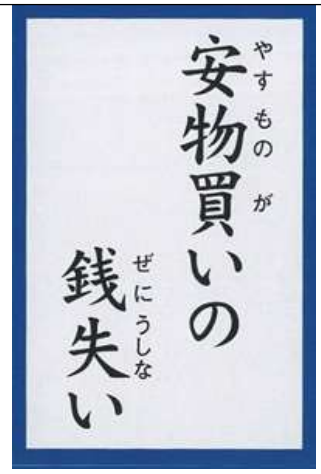 安物買いの
やすものが
銭失い
ぜにうしな